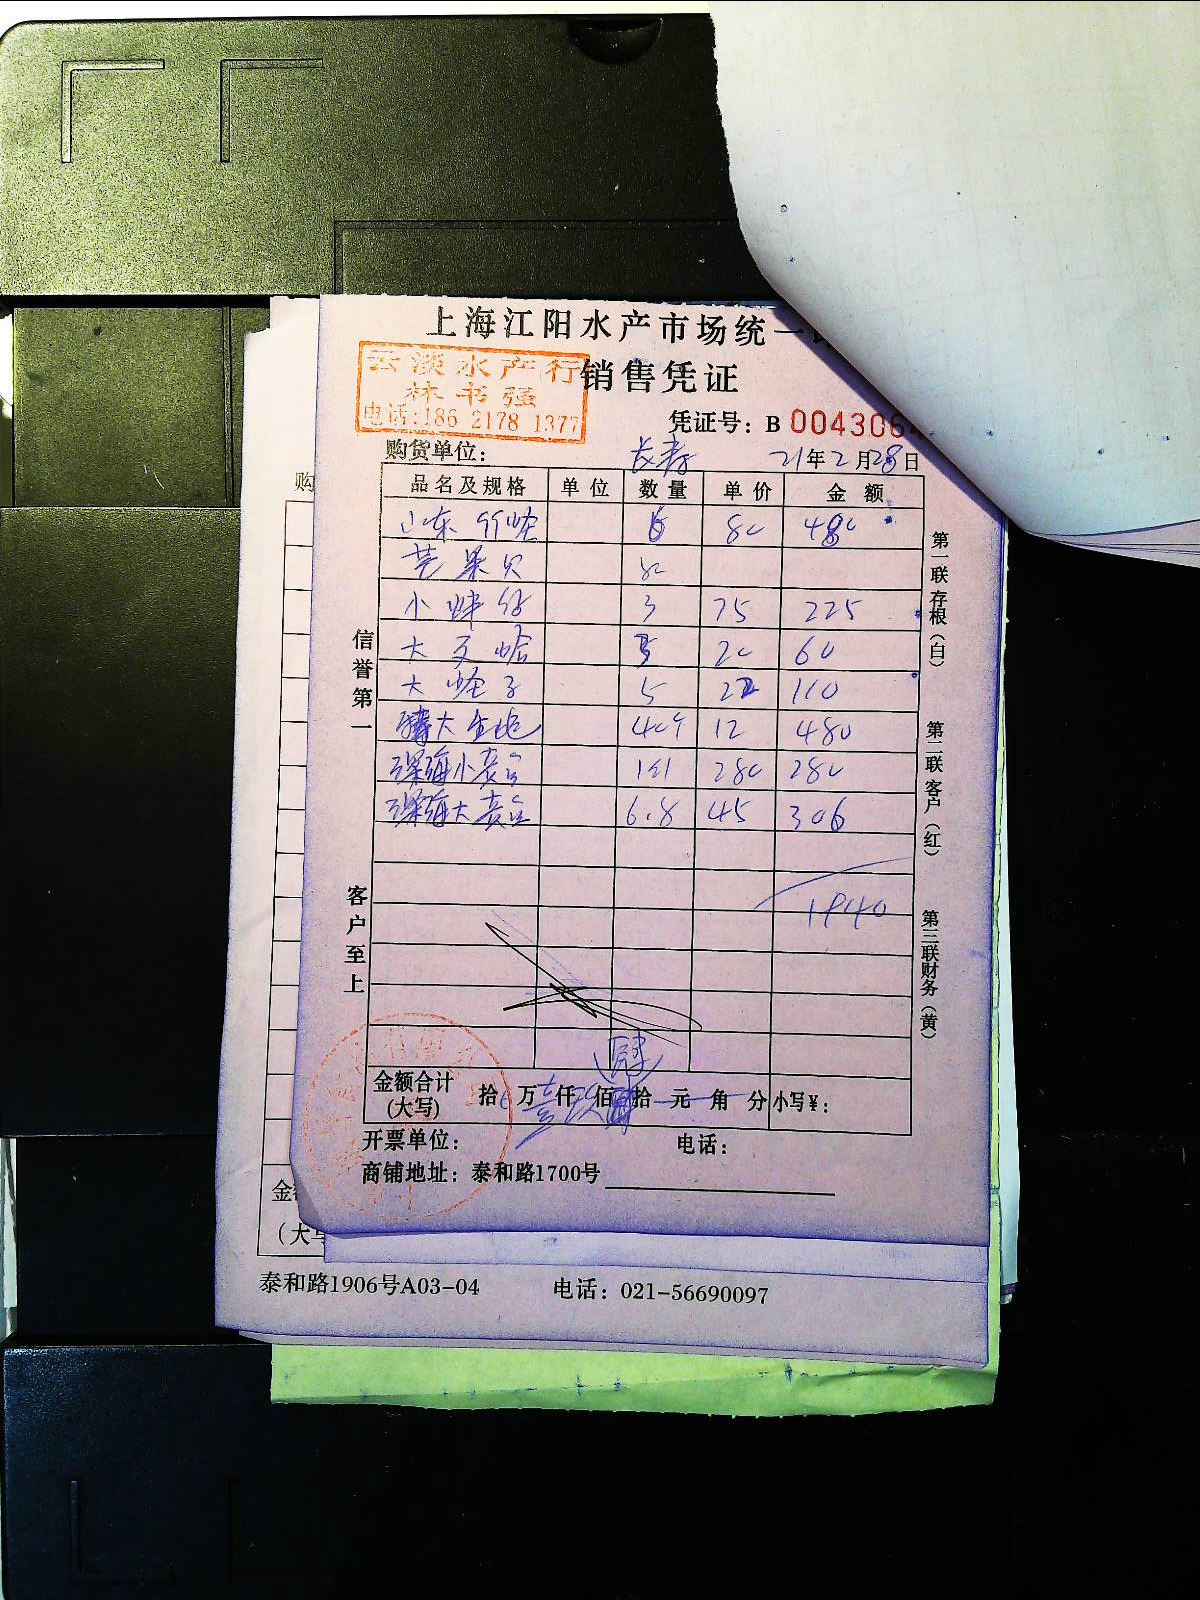 上海江阳水产市场统一
销售凭证
云淡水产行
林书强
电话:186 2178 1377
凭证号: B 004306
购货单位: 长寿 21年2月28日
购
品名及规格 单位 数量 单价 金额
山东竹蛏 6 80 480
芒果贝
小 3 75 225
大文蛤 3 20 60
大蛏子 5 22 110
特大生蚝 40个 12 480
深海小 1 280 280
深海大 6.8 45 306
1940
信誉第一
客户至上
第一联存根(白)
第二联客户(红)
第三联财务(黄)
肆
金额合计(大写) 拾 万 壹 仟 玖 佰 拾 元 角 分 小写¥:
开票单位: 电话:
商铺地址: 泰和路1700号
金
(大写
泰和路1906号A03-04 电话: 021-56690097